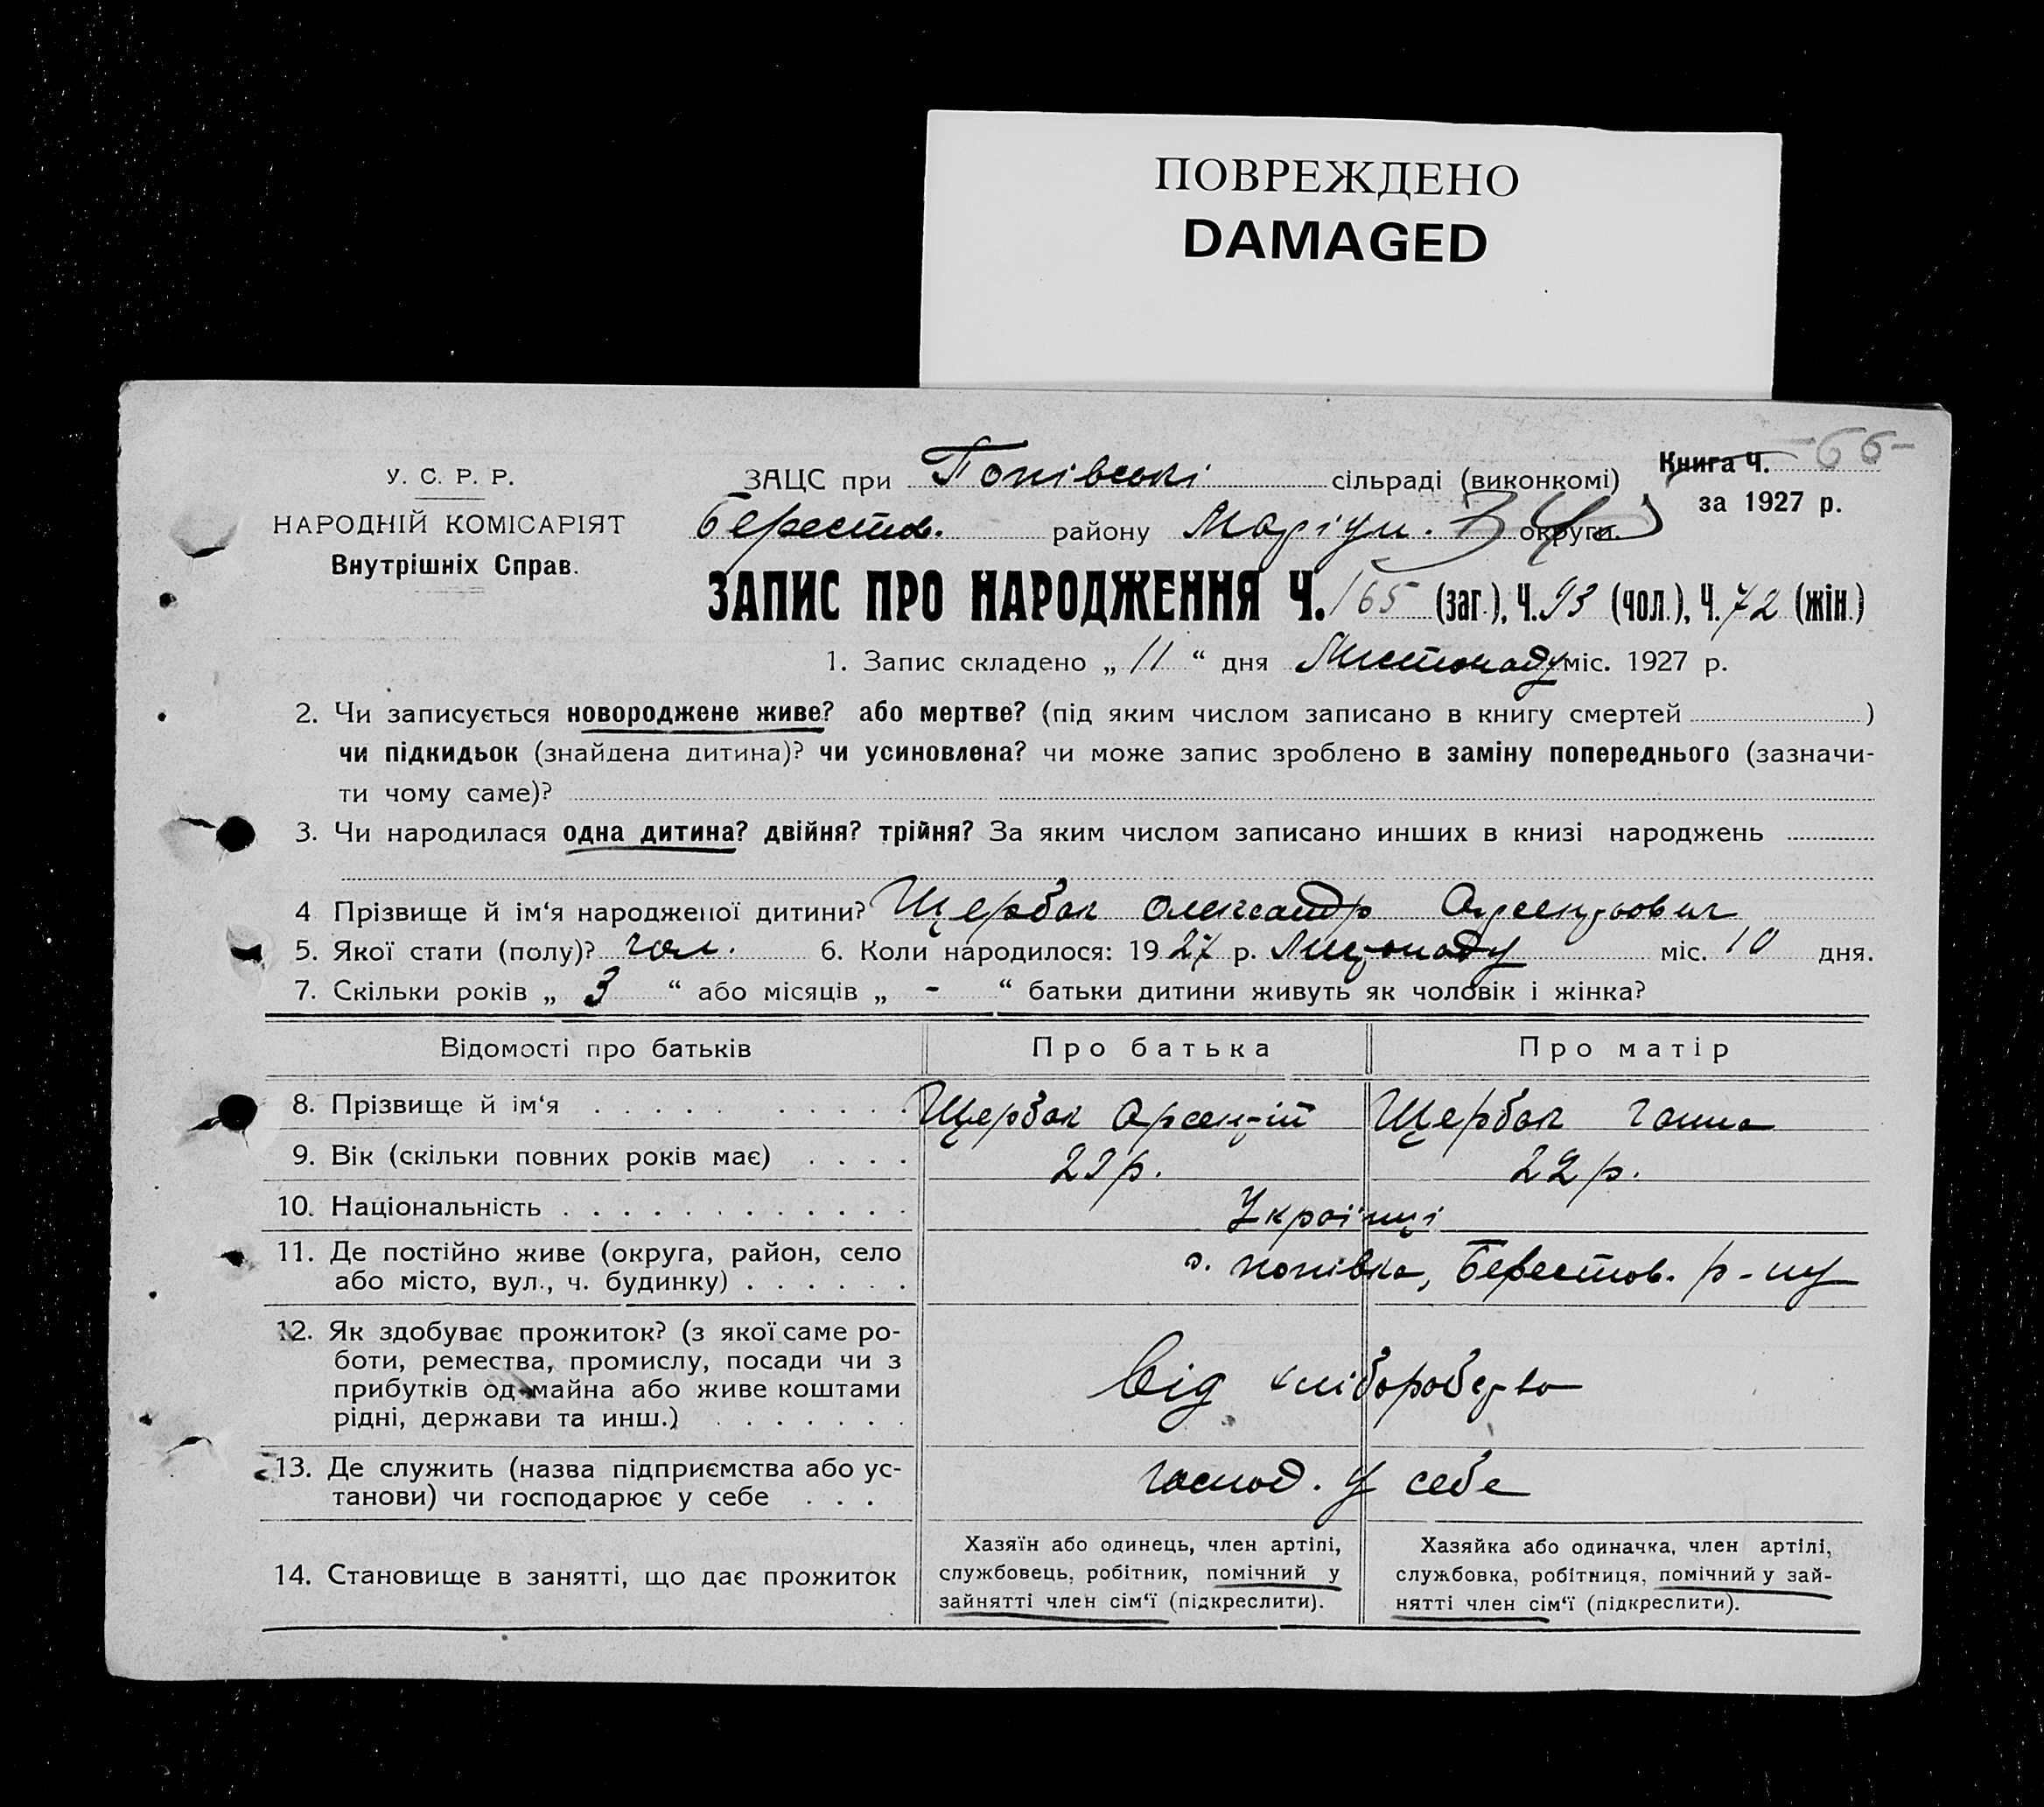 ПОВРЕЖДЕНО
DAMAGED
-66-
У. С. Р. Р.
НАРОДНІЙ КОМІСАРІЯТ
Внутрішніх Справ.
ЗАЦС при Попівські сільраді (виконкомі)
Книга Ч.
за 1927 р.
Берестов. району Маріуп. округи.
ЗАПИС ПРО НАРОДЖЕННЯ Ч. 165 (заг.), Ч. 93 (чол.), Ч. 72 (жін.)
1. Запис складено „ 11 “ дня Листопаду міс. 1927 р.
2. Чи записується новороджене живе? або мертве? (під яким числом записано в книгу смертей )
чи підкидьок (знайдена дитина)? чи усиновлена? чи може запис зроблено в заміну попереднього (зазначи-
ти чому саме)?
3. Чи народилася одна дитина? двійня? трійня? За яким числом записано инших в книзі народжень
4 Прізвище й ім‘я народженої дитини? Щербак Олександр Арсентьович
5. Якої стати (полу)? чол. 6. Коли народилося: 1927 р. Листопаду міс. 10 дня.
7. Скільки років „ 3 “ або місяців „ - “ батьки дитини живуть як чоловік і жінка?
Відомості про батьків Про батька Про матір
8. Прізвище й ім‘я Щербак Арсентій Щербак Ганна
9. Вік (скільки повних років має) 22 р. 22 р.
10. Національність Українці
11. Де постійно живе (округа, район, село
або місто, вул., ч. будинку) с. Попівка, Берестов. р-ну
12. Як здобуває прожиток? (з якої саме ро-
боти, ремества, промислу, посади чи з
прибутків од майна або живе коштами
рідні, держави та инш.)
від хліборобства
13. Де служить (назва підприємства або ус-
танови) чи господарює у себе
господ. у себе
14. Становище в занятті, що дає прожиток
Хазяїн або одинець, член артілі,
службовець, робітник, помічний у
зайнятті член сім‘ї (підкреслити).
Хазяйка або одиначка, член артілі,
службовка, робітниця, помічний у зай-
нятті член сім‘ї (підкреслити).